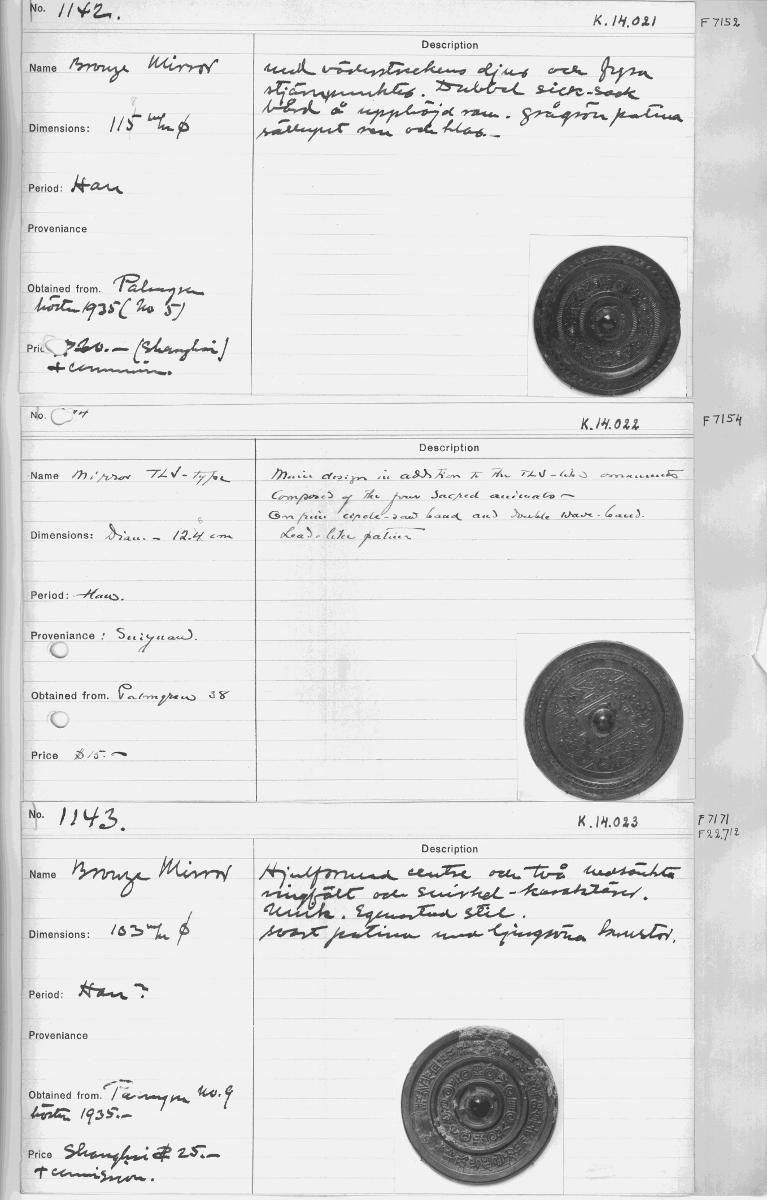 No. 1142. K.14.021 F 7152
Description
Name Bronze Mirror
med väderstreckens djur och fyra
stjärnpunkter. Dubbel sick-sack
bård å upphöjd ram. grågrön patina
sällsynt ren och klar.-
Dimensions: 115 m/m φ
Period: Han
Proveniance
Obtained from. Palmgren
hösten 1935 (No 5)
Price 720.- (Shanghai)
+
No. K.14.022 F 7154
Description
Name Mirror TLV-type
Main design in addition to the TLV-like ornaments
Composed of the four Sacred animals -
On rim saw band and double wave-band.
Lead-like patina
Dimensions: Diam. - 12.4 cm
Period: Han.
Proveniance: Suiyuan.
Obtained from. Palmgren 38
Price $15.-
No. 1143. K.14.023 F 7171
F 22.712
Description
Name Bronze Mirror
Hjulformad centre och två nedsänkta
ringfält och snirkel-karaktärer.
Unik. stil.
svart patina med ljusgröna krustor.
Dimensions: 103 m/m φ
Period: Han?
Proveniance
Obtained from. Palmgren No. 9
hösten 1935.-
Price Shanghai $ 25.-
+ commission.